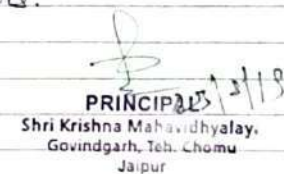 PRINCIPAL
Shri Krishna Mahavidhyalay,
Govindgarh, Teh. Chomu
Jaipur